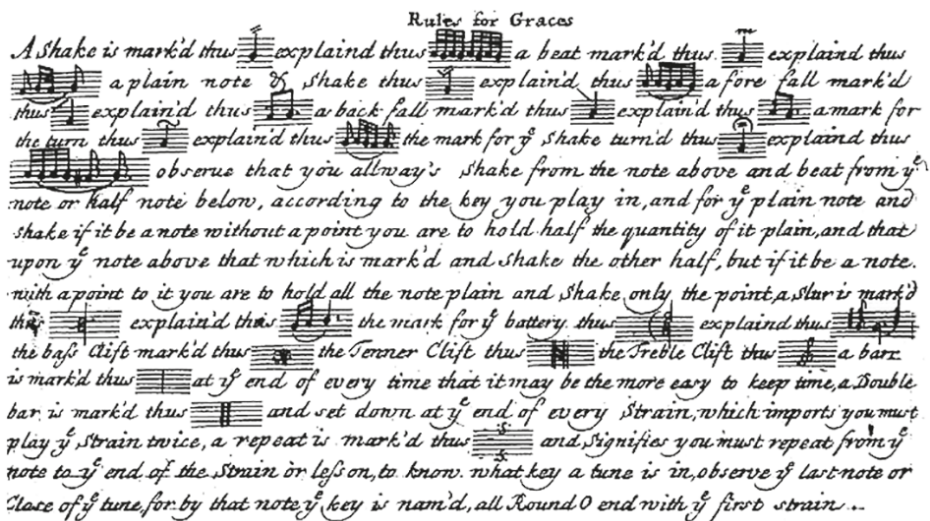 Rules for Graces
A Shake is mark'd thus explaind thus a beat mark'd thus explaind thus
a plain note & Shake thus explain'd thus a fore fall mark'd
thus explain'd thus a back fall mark'd thus explain'd thus a mark for
the turn thus explain'd thus the mark for yͤ Shake turn'd thus explain'd thus
observe that you allway's Shake from the note above and beat from yͤ
note or half note below, according to the key you play in, and for yͤ plain note and
Shake if it be a note without a point you are to hold half the quantity of it plain, and that
upon yͤ note above that which is mark'd and Shake the other half, but if it be a note
with a point to it you are to hold all the note plain and Shake only the point, a Slur is mark'd
thus explain'd thus the mark for yͤ battery thus explaind thus
the baſs Clift mark'd thus the Tenner Clift thus the Treble Clift thus a barr
is mark'd thus at yͤ end of every time that it may be the more easy to keep time, a Double
bar is mark'd thus and set down at yͤ end of every Strain, which imports you must
play yͤ Strain twice, a repeat is mark'd thus .S. and Signifies you must repeat from yͤ
note to yͤ end of the Strain or leſson, to know what key a tune is in, observe yͤ last note or
Close of yͤ tune, for by that note yͤ key is nam'd, all Round O end with yͤ first strain..